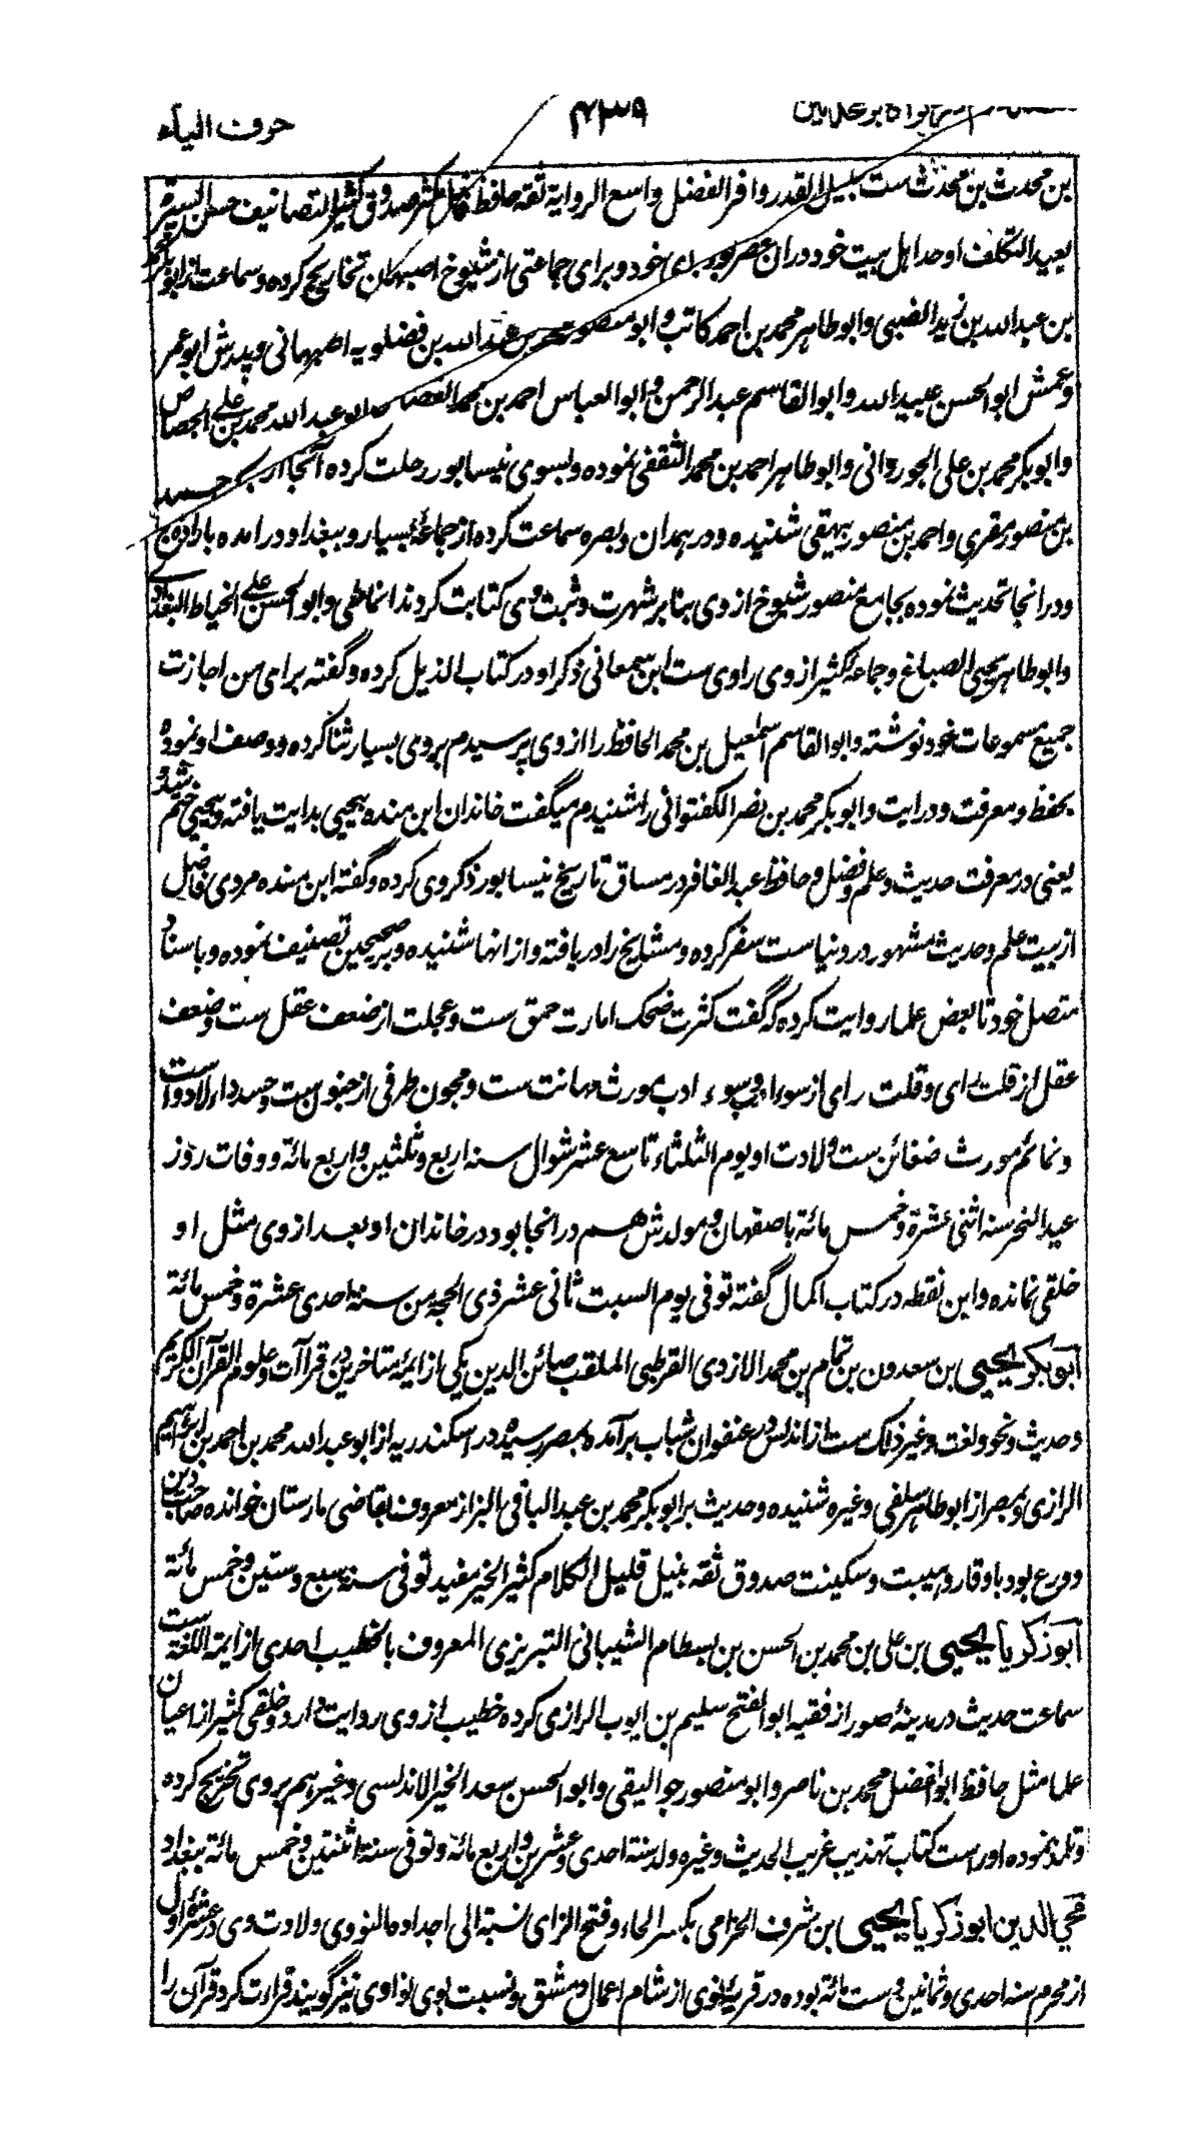 حرف الیآء
۴۳۹
بن محدث بن محدث ست جلیل القدر وافر الفضل واسع الروایة ثقه حافظ فاضل مکثر صدوق کثیر التصانیف حسن السیرة
بعید التکلف اوحد اہل بیت خود در ان عصر بود برای خود و برای جماعتی از شیوخ اصبہان تخاریج کردہ و سماعت از ابو بکر محمد
بن عبد اللہ بن زید الضبی و ابو طاہر محمد بن احمد کاتب و ابو منصور محمد بن عبد اللہ بن فضلویہ اصبہانی و پدرش ابو عمر
و عمش ابو الحسن عبید اللہ و ابو القاسم عبد الرحمن و ابو العباس احمد بن محمد القصاص و ابو عبد اللہ محمد بن علی الجصاص
و ابو بکر محمد بن علی الجوردانی و ابو طاہر احمد بن محمد الثقفی نمودہ و بسوی نیسابور رحلت کردہ آنجا از
بن منصور مقری و احمد بن منصور بیہقی شنیدہ و در ہمدان و بصرہ سماعت کردہ از جماعۂ بسیار و ببغداد در امدہ بارادہ حج
و در انجا تحدیث نمودہ بجامع منصور شیوخ از وی بنا بر شہرت و ثبت وی کتابت کردند انماطی و ابو الحسن علی الخیاط البغدادی
و ابو طاہر یحیی الصباغ و جماعۂ کثیر از وی راوی ست ابن سمعانی ذکر او در کتاب الذیل کردہ و گفتہ برای من اجازت
جمیع مسموعات خود نوشتہ و ابو القاسم اسمٰعیل بن محمد الحافظ را از وی پرسیدم بروی بسیار ثنا کردہ و وصف او نمودہ
بحفظ و معرفت و درایت و ابو بکر محمد بن نصر الکفتوانی را شنیدم میگفت خاندان ابن مندہ بیحیی بدایت یافتہ و بیحیی ختم شدہ
یعنی در معرفت حدیث و علم و فضل و حافظ عبد الغافر در مساق تاریخ نیسابور ذکر وی کردہ و گفتہ ابن مندہ مردی فاضل
از بیت علم و حدیث مشہور در دنیا ست سفر کردہ و مشایخ را دریافتہ و از انہا شنیدہ و بر صحیحین تصنیف نمودہ و باسناد
متصل خود تا بعض علما روایت کردہ کہ گفت کثرت ضحک امارت حمق ست و عجلت از ضعف عقل ست و ضعف
عقل از قلت رای و قلت رای از سوء ادب و سوء ادب مورث مہانت ست و مجون طرفی از جنون ست و حسد داء لا دوا است
و نمائم مورث ضغائن ست ولادت او یوم الثلثاء تاسع عشر شوال سنہ اربع و ثلثین و اربع مائة و وفات روز
عید النحر سنہ اثنی عشرة و خمس مائة باصفہان و مولدش ہم در انجا بود در خاندان او بعد از وی مثل او
خلقی نماندہ و ابن نقطہ در کتاب اکمال گفتہ توفی یوم السبت ثانی عشر ذی الحجہ من سنة احدی عشرة و خمس مائة
ابو بکر یحیی بن سعدون بن تمام بن محمد الازدی القرطبی الملقب صائن الدین یکی از ایمۂ متاخرین در قراآت و علوم القرآن الکریم
و حدیث و نحو و لغت و غیر ذلک ست از اندلس در عنفوان شباب برآمدہ بمصر رسیدہ در اسکندریہ از ابو عبد اللہ محمد بن احمد بن ابراہیم
الرازی و بمصر از ابو طاہر سلفی و غیرہ شنیدہ و حدیث بر ابو بکر محمد بن عبد الباقی البزاز معروف بقاضی مارستان خواندہ صاحب دین
و ورع بود با وقار و ہیبت و سکینت صدوق ثقہ نبیل قلیل الکلام کثیر الخیر مفید توفی سنہ سبع و ستین و خمس مائة
ابو زکریا یحیی بن علی بن محمد بن الحسن بن بسطام الشیبانی التبریزی المعروف بالخطیب احدی از ایمۃ اللغة ست
سماعت حدیث در مدینۂ صور از فقیہ ابو الفتح سلیم بن ایوب الرازی کردہ خطیب از وی روایت دارد و خلقی کثیر از اعیان
علما مثل حافظ ابو الفضل محمد بن ناصر و ابو منصور جوالیقی و ابو الحسن سعد الخیر الاندلسی و غیرہم بروی تخریج کردہ
و تلمذ نمودہ اوراست کتاب تہذیب غریب الحدیث و غیرہ ولد سنة احدی و عشرین و اربع مائة و توفی سنة اثنتین و خمس مائة ببغداد
محی الدین ابو زکریا یحیی بن شرف الحزامی بکسر الحاء و فتح الزای نسبة الی اجدادہ النووی ولادت وی در عشرۂ اول
از محرم سنہ احدی و ثمانین و ست مائة بودہ در قریۂ نوی از شام اعمال دمشق و نسبت بوی نواوی نیز گویند قراءت کرد قرآن را